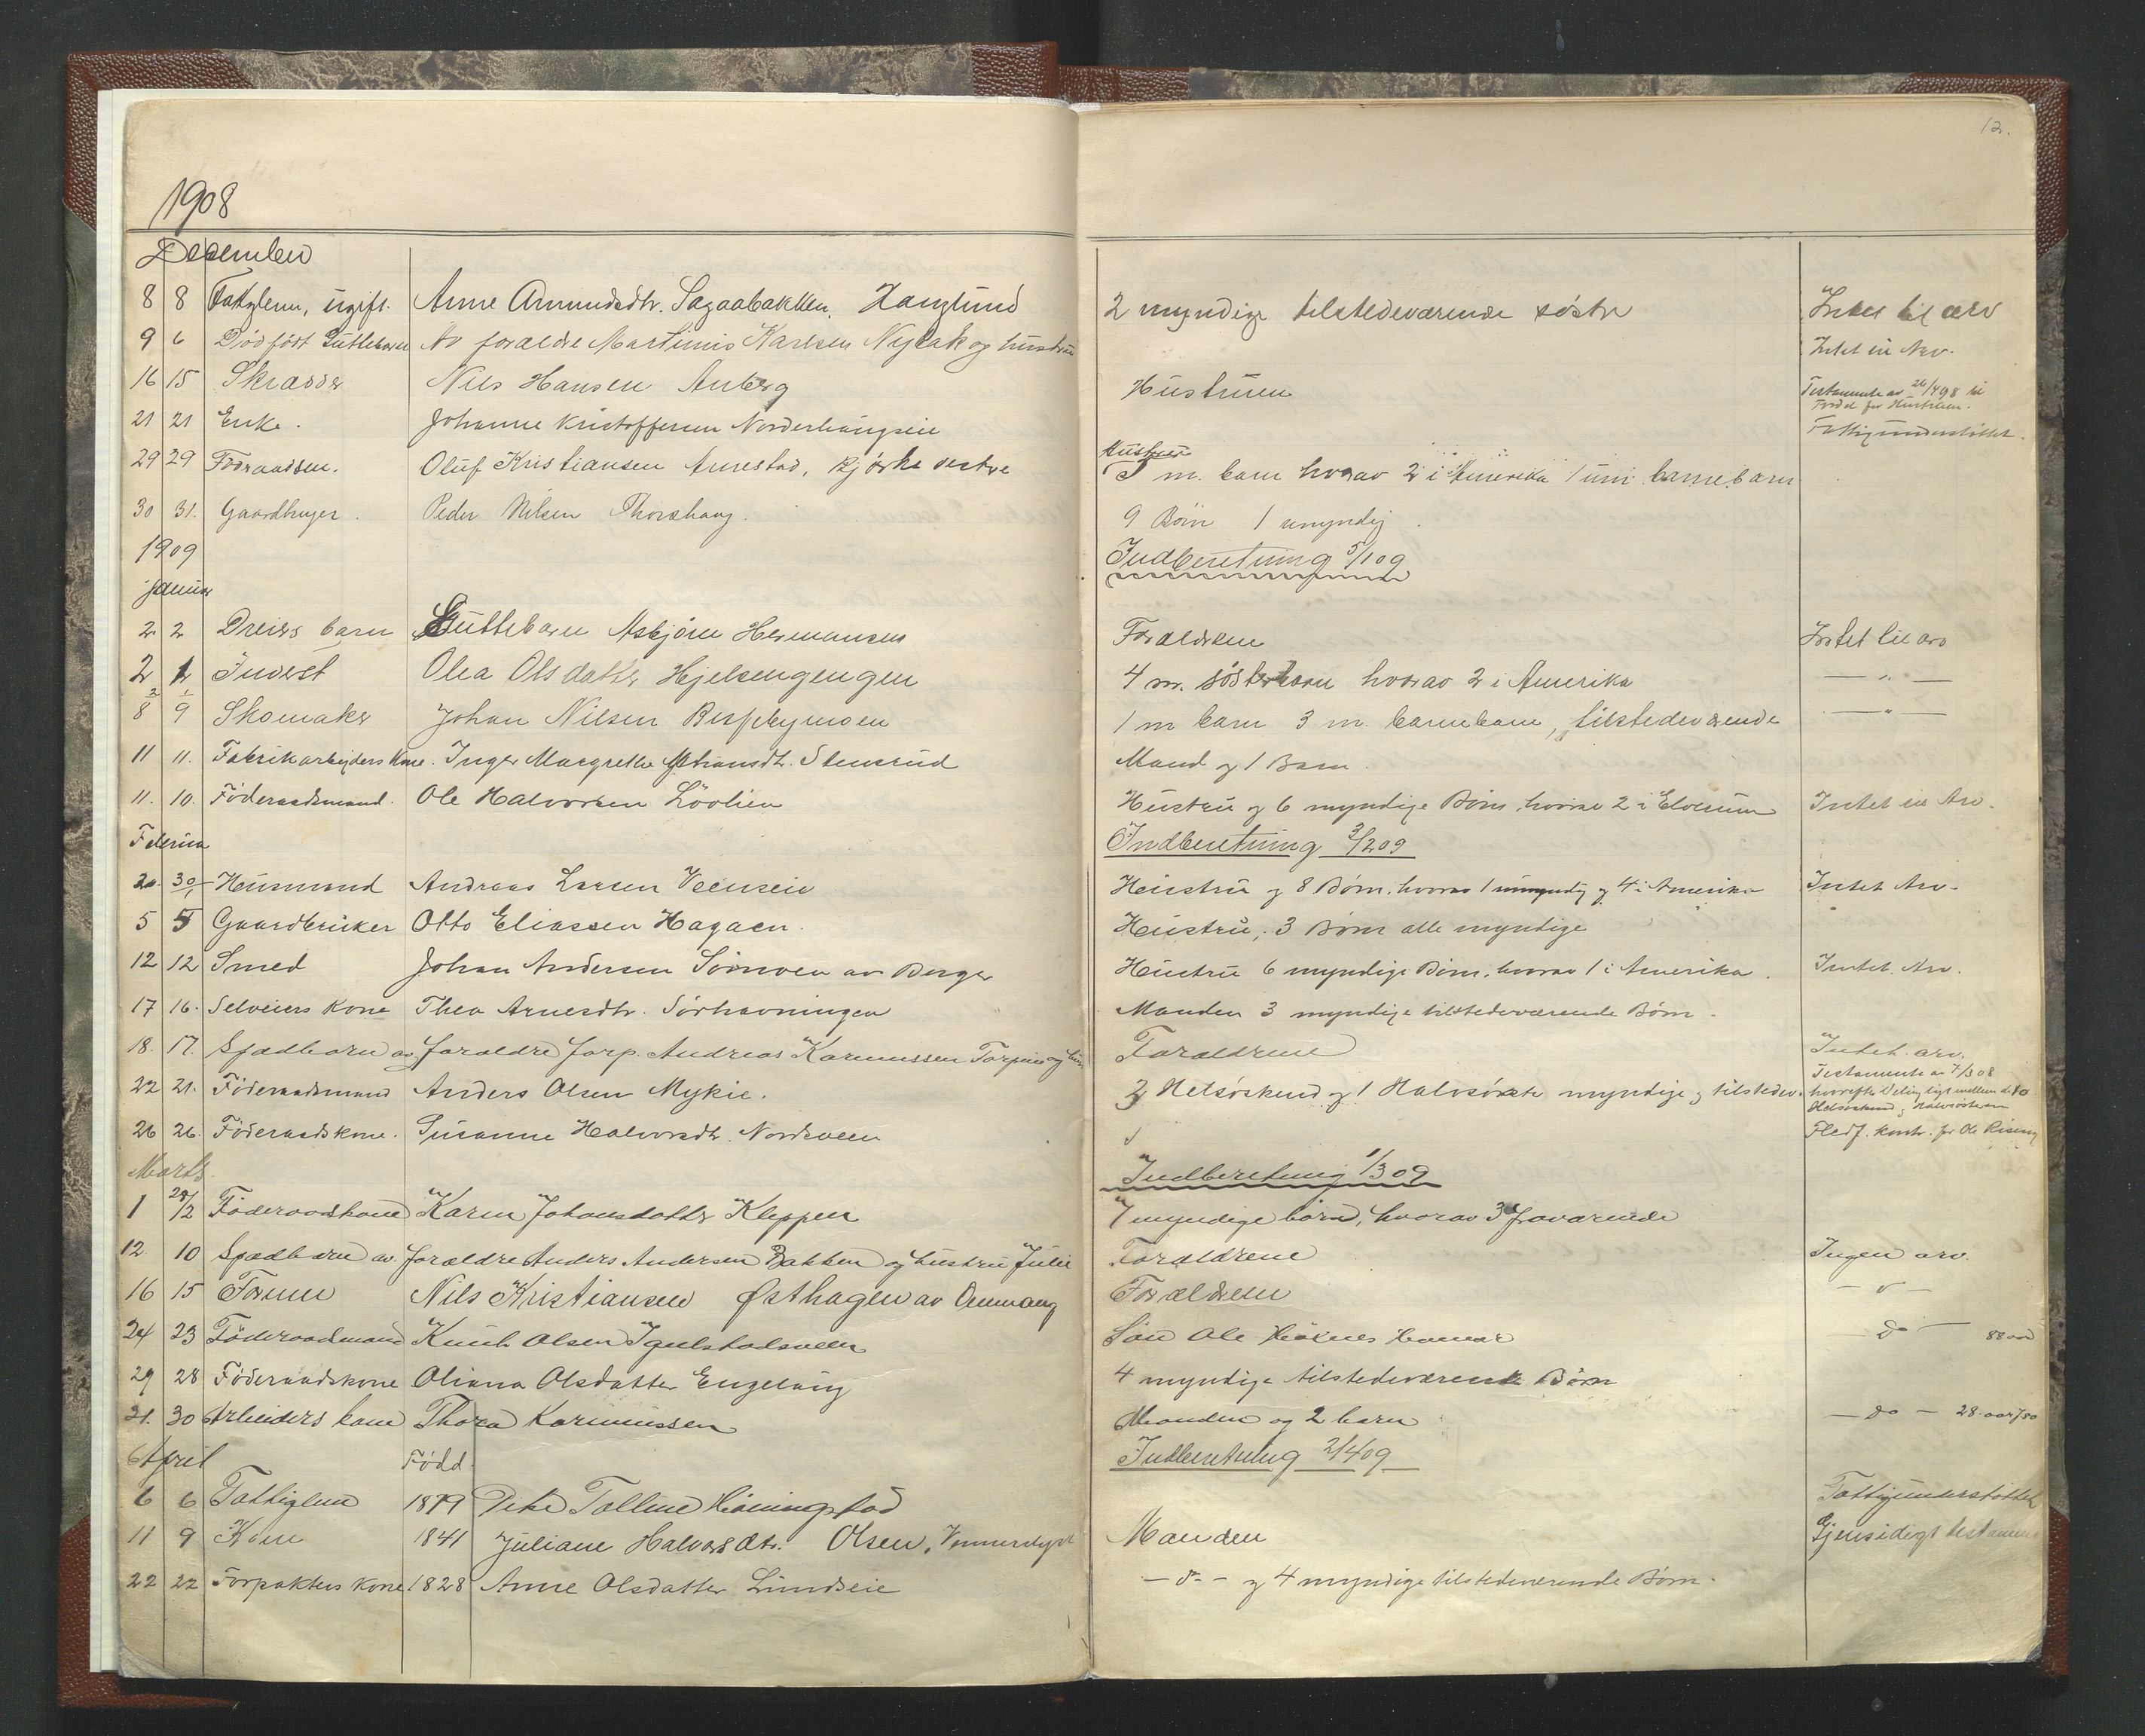 12.
1908
December
8 8 Fattiglem, ugift. Anne Amundsdtr. Sagaabakken, 2 myndige tilstedeværende søstre Intet til arv
9 6 Dødfødt Guttebarn Av forældre Martinius Karlsen og hustru Intet til Arv.
16 15 Skrædder Nils Hansen Anberg Hustruen Testamente av 26/4 98 til
Fordel for Hustruen.
21 21 Enke. Johanne Kristoffersen Norderhaugseie Fattigunderstøttet.
Hustru
29 29 Føderaadsm. Oluf Kristiansen Arnestad, Kjørke vestre 5 m. barn hvorav 2 i Amerika 1 um. barnebarn
30 31. Gaardbruger. Peder Nilsen Thorshaug. 9 Børn 1 umyndig
1909
Indberetning 5/1 09
Januar
2. 2 Dreiers barn Guttebarn Asbjørn Hermansen Forældrene Intet til arv
2 2 Inderst Olea Olsdatter Hjelsengengen 4 m. søsterbarn hvorav 2 i Amerika — " —
8 9 Skomaker Johan Nilsen Bispebymoen 1 m barn 3 m. barnebarn, tilstedeværende — " —
11 11. Fabrikarbejders Kone. Inger Margrethe Stensrud Mand og 1 Barn.
11. 10. Føderaadsmand. Ole Halvorsen Løvlien Hustru og 6 myndige Børn, hvorav 2 i Elverum Intet til Arv.
Februar
Indberetning 3/2 09
30/1 Husmand Andreas Larsen Veenseie Hustru og 8 Børn, hvorav 1 umyndig og 4 i Amerika Intet Arv.
5 5 Gaardbruker Otto Eliassen Hagaen. Hustru, 3 Børn alle myndige "
12 12 Smed Johan Andersen av Berger Hustru 6 myndige Børn, hvorav 1 i Amerika. Intet Arv.
17 16. Selveiers Kone Thea Arnesdtr. Sørhavningen Manden 3 myndige tilstedeværende Børn.
18. 17. Spædbarn av forældre forp. Andreas Karenussen og Forældrene Intet arv.
22 21. Føderaadsmand Anders Olsen Mykie. 2 Helsøskend og 1 Halvsøster myndige og tilstedev. Testamente av 7/3 08
hvorefter Deling ligt mellem de to
Helsøskend og Halvsøsteren
26 26. Føderaadskone. Susanne Halvorsdtr. Nordsveen Fledf. kontr. for Ole Riseng
Marts.
Indberetning 1/3 09
1 28/2 Føderaadskone Karen Johansdatter Kleppen 7 myndige børn, hvorav 3 fraværende
12. 10 Spædbarn av forældre Anders Andersen Bakken og hustru Julie Forældrene Ingen arv.
16 15 Former Nils Kristiansen Østhagen av Ommang Forældrene — " —
24 23 Føderaadmand Knut Olsen Igelstadsveen Søn Ole — do — 88 aar
29 28 Føderaadskone Oliana Olsdatter Engelaug 4 myndige tilstedeværende Børn
31. 30 Arbeiders kone Thora Karenussen Manden og 2 barn — do — 28 aar
April
Født. Indberetning 2/4 09
6 6 Fattiglem 1879 Pike Talline Fattigunderstøttet
11 9 Kone 1841 Juliane Halvorsdtr. Olsen, Manden Gjensidigt
22 22 Forpakters kone 1828 Anne Olsdatter Lundseie — do — og 4 myndige tilstedeværende Børn.